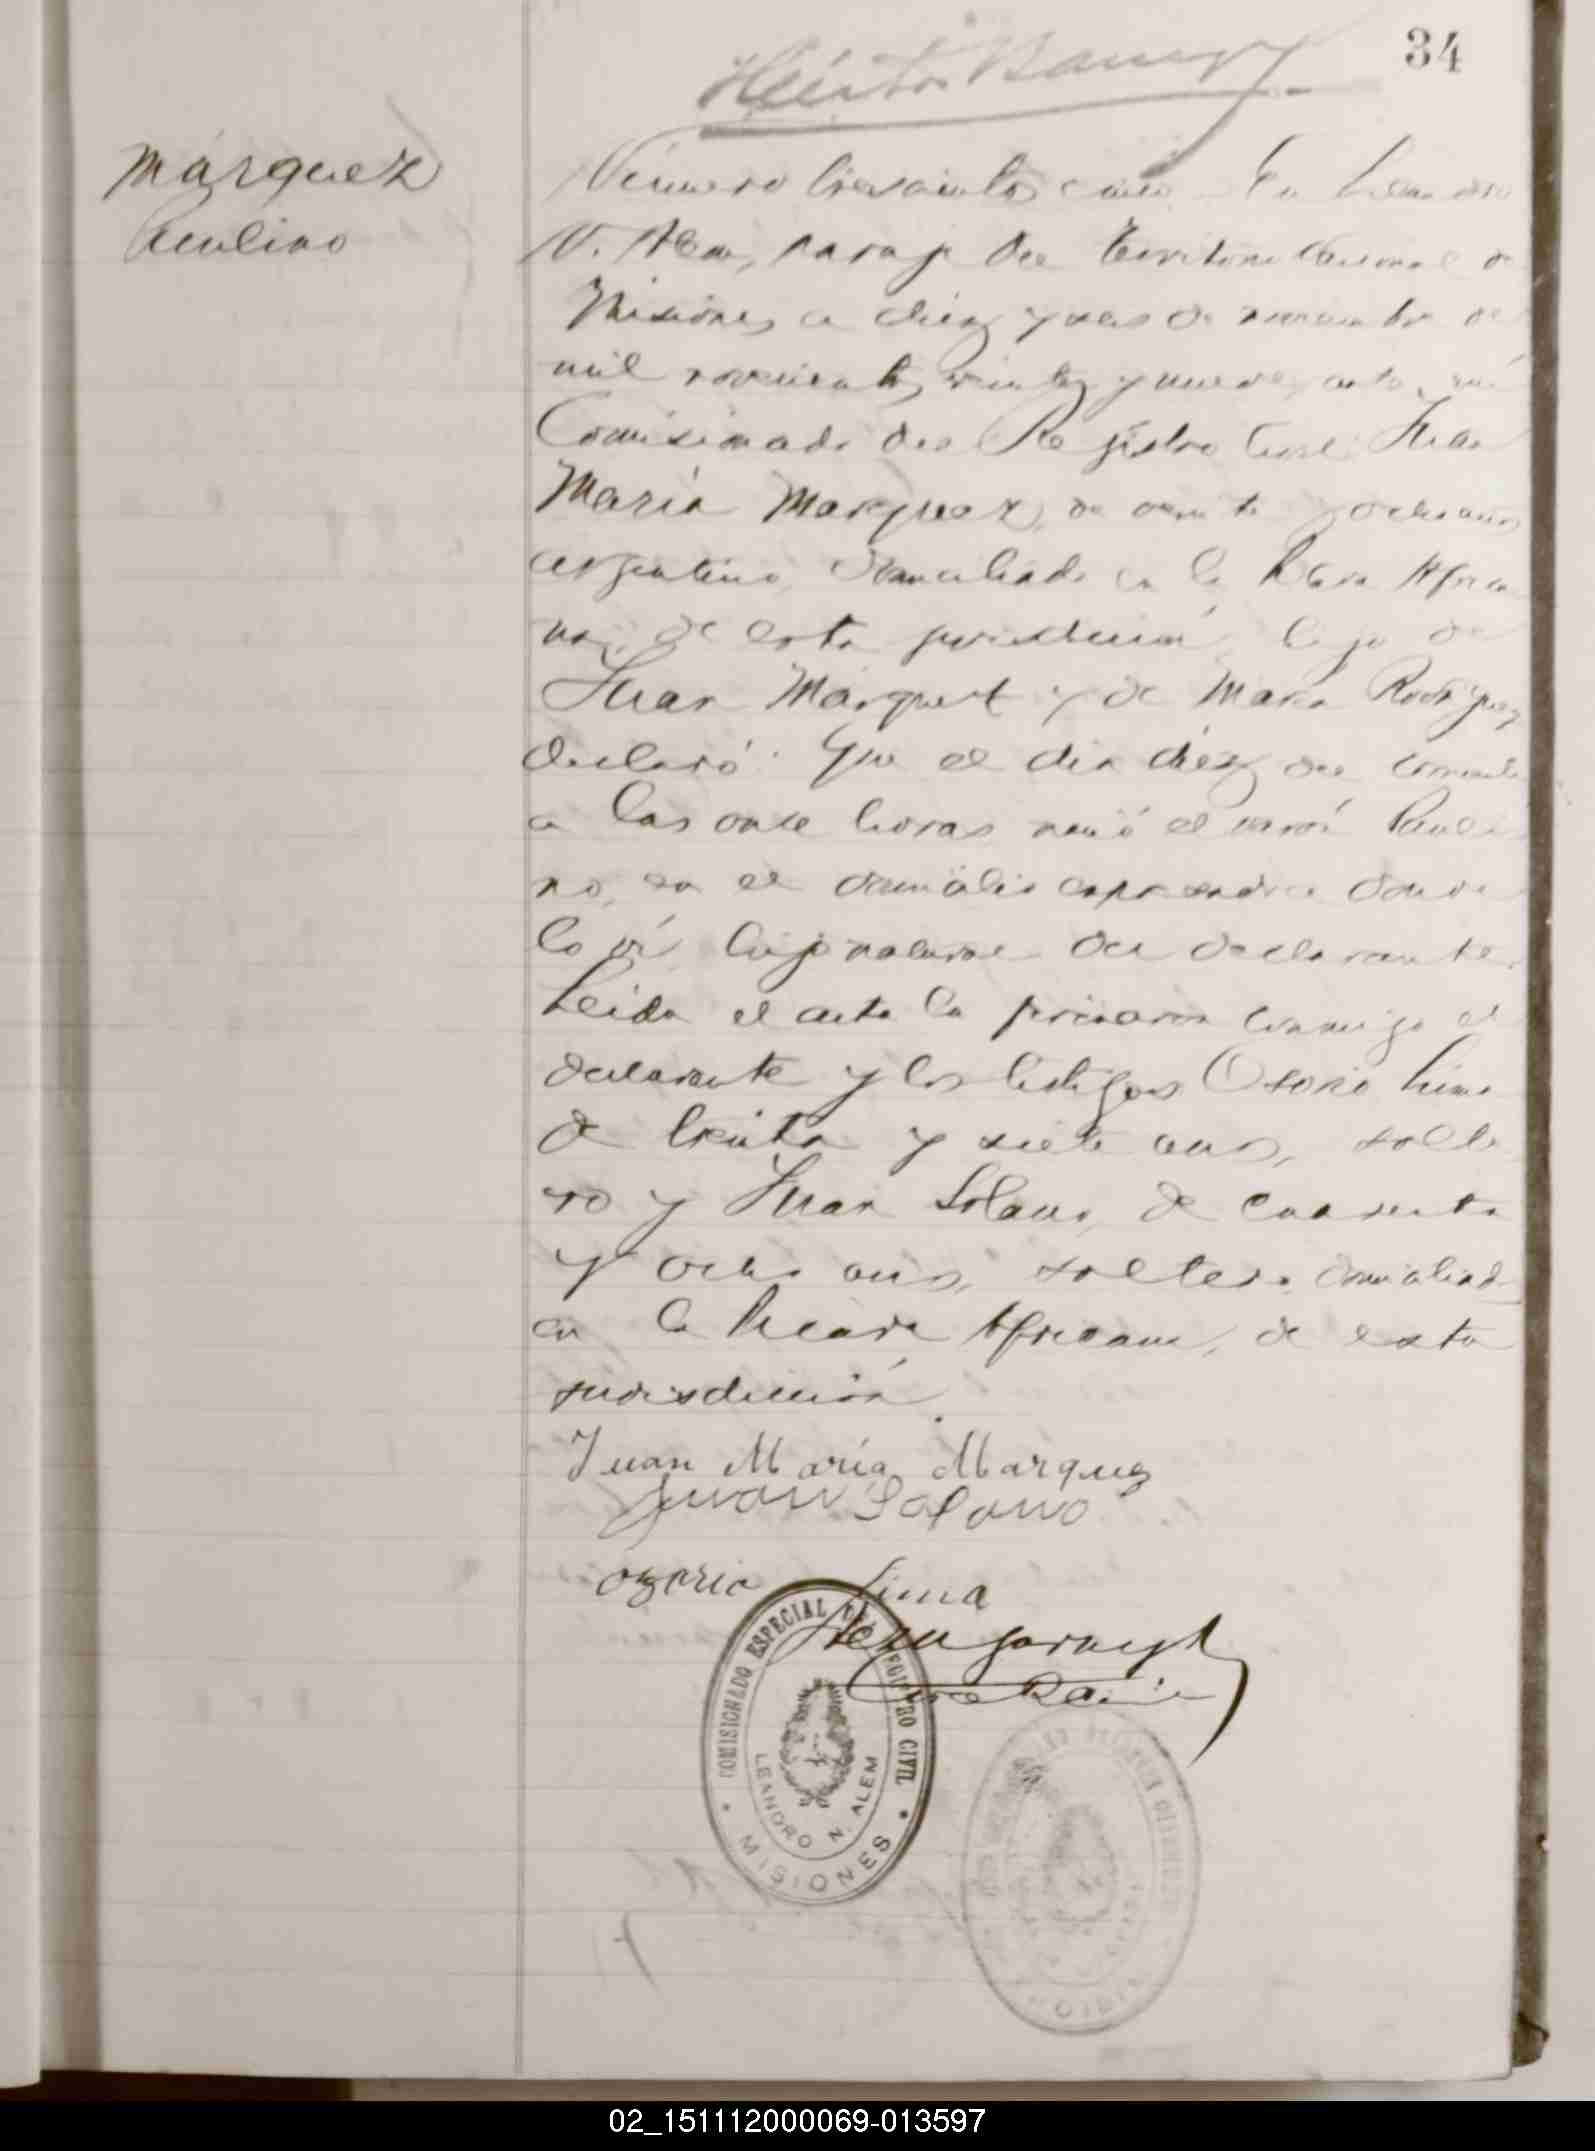 34
Márquez
Paulino
Número trescientos cinco En Leandro
N. Alem, paraje del Territorio Nacional de
Misiones, a diez y seis de noviembre de
mil novecientos veinte y nueve, ante mi
Comisionado del Registro Civil Juan
María Marquez, de veinte y ocho años
argentino, domiciliado en la Picada Africa
na, de esta jurisdicción, hijo de
Juan Márquez y de Maria Rodriguez
declaró: Que el dia diez del corriente
a las onse horas nació el varón Pauli
no, en el domicilio expresado donde
lo ví hijo natural del declarante.
Leida el acta la firmaron conmigo el
declarante y los testigos Osorio Lima
de treinta y siete años, solte
ro y Juan Solano, de cuarenta
y ocho años, soltero domiciliados
en la Picada Africana, de esta
jurisdicción.
Juan María Márquez
Juan Solano
ozorio Lima
COMISIONADO ESPECIAL DEL REGISTRO CIVIL
LEANDRO N. ALEM
MISIONES
02_151112000069-013597